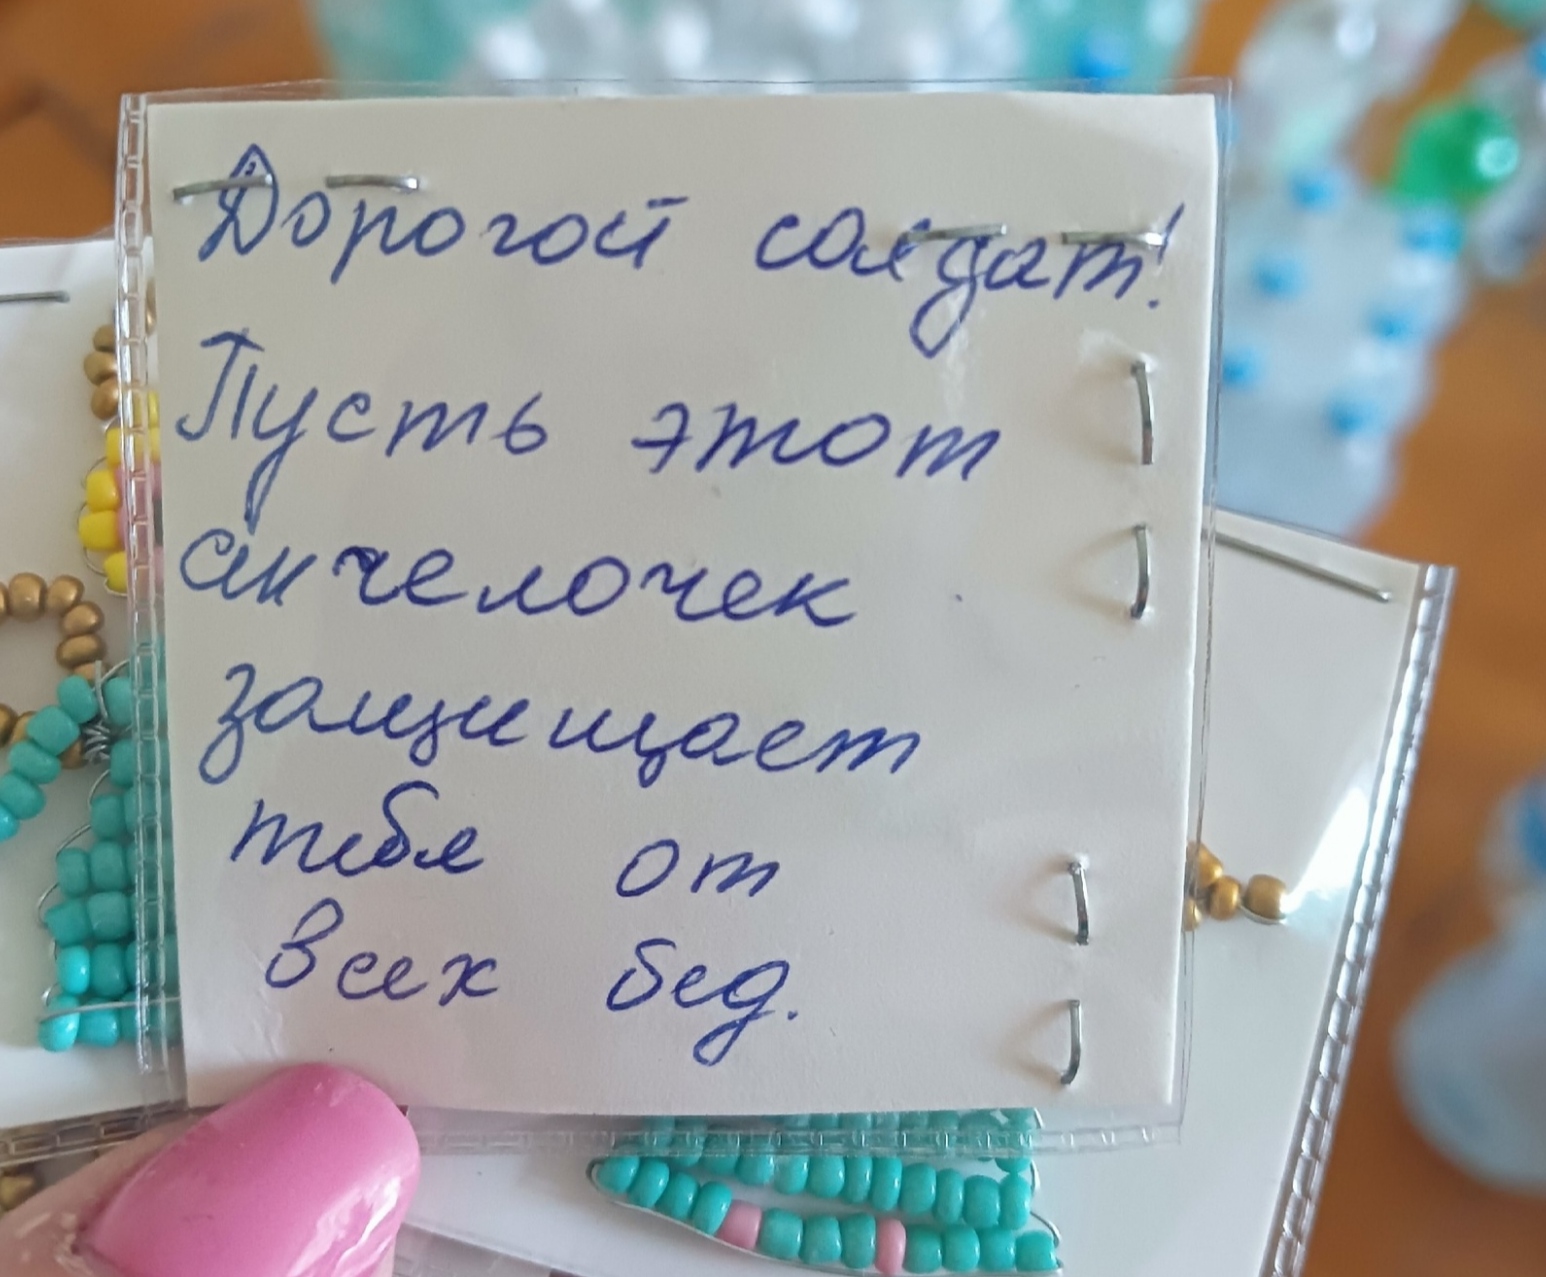 Дорогой солдат!
Пусть этот
анчелочек
защищает
тебя от
всех бед.